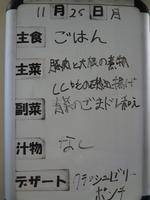 11月25日月
主食 ごはん
主菜 豚肉と大根の煮物
ししゃもの石垣揚げ
副菜 白菜のごまドレ和え
汁物 なし
デザート クラッシュゼリー
ポンチ